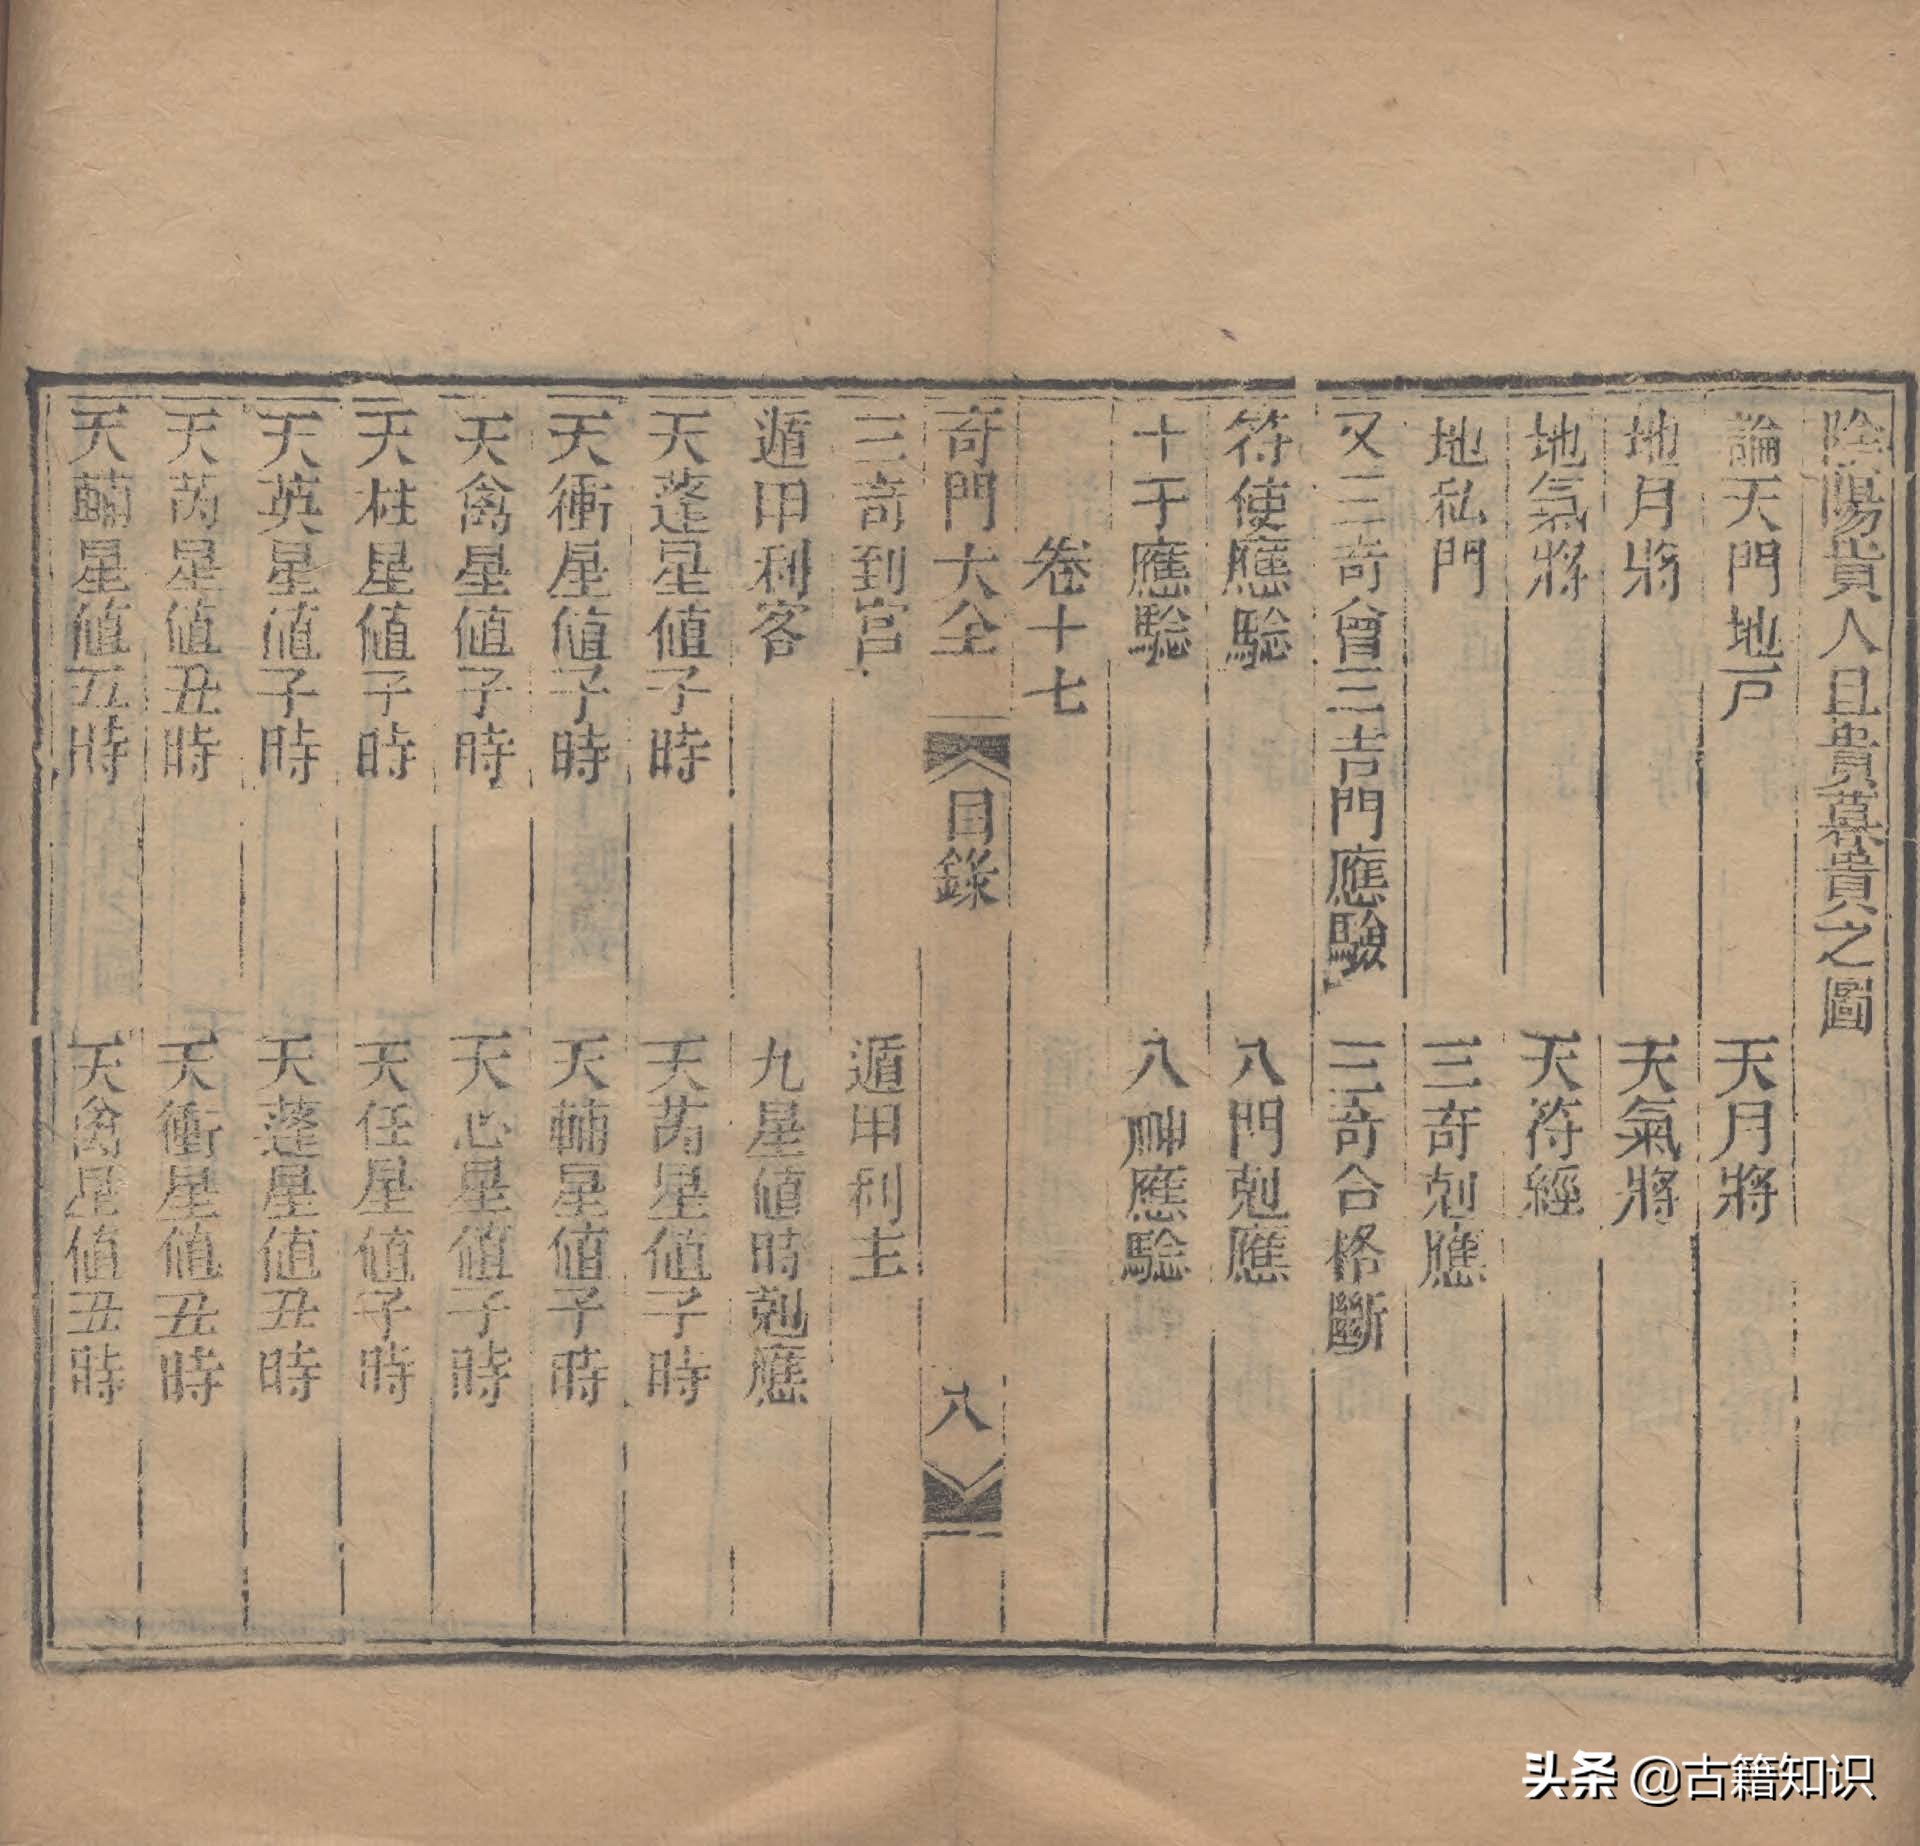 陰陽貴人旦貴暮貴之圖
論天門地戸
天月將
地月將
天氣將
地氣將
天符經
地私門
三奇剋應
又三奇會三吉門應驗
三奇合格斷
符使應驗
八門剋應
十干應驗
八神應驗
卷十七
奇門大全
目錄
八
三奇到宫
遁甲利主
遁甲利客
九星値時剋應
天蓬星値子時
天芮星値子時
天衝星値子時
天輔星値子時
天禽星値子時
天心星値子時
天柱星値子時
天任星値子時
天英星値子時
天蓬星値丑時
天芮星値丑時
天衝星値丑時
天輔星値丑時
天禽星値丑時
头条 @古籍知识